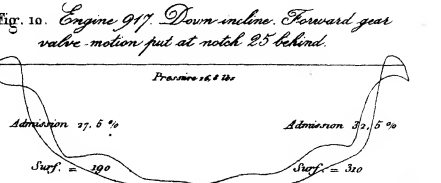 Fig. 10. Engine 917. Down incline. Forward gear
valve motion put at notch 25 behind.
Pressure 16,8 lbs
Admission 27,5 % Admission 32,5 %
Surf. = 190 Surf. = 310